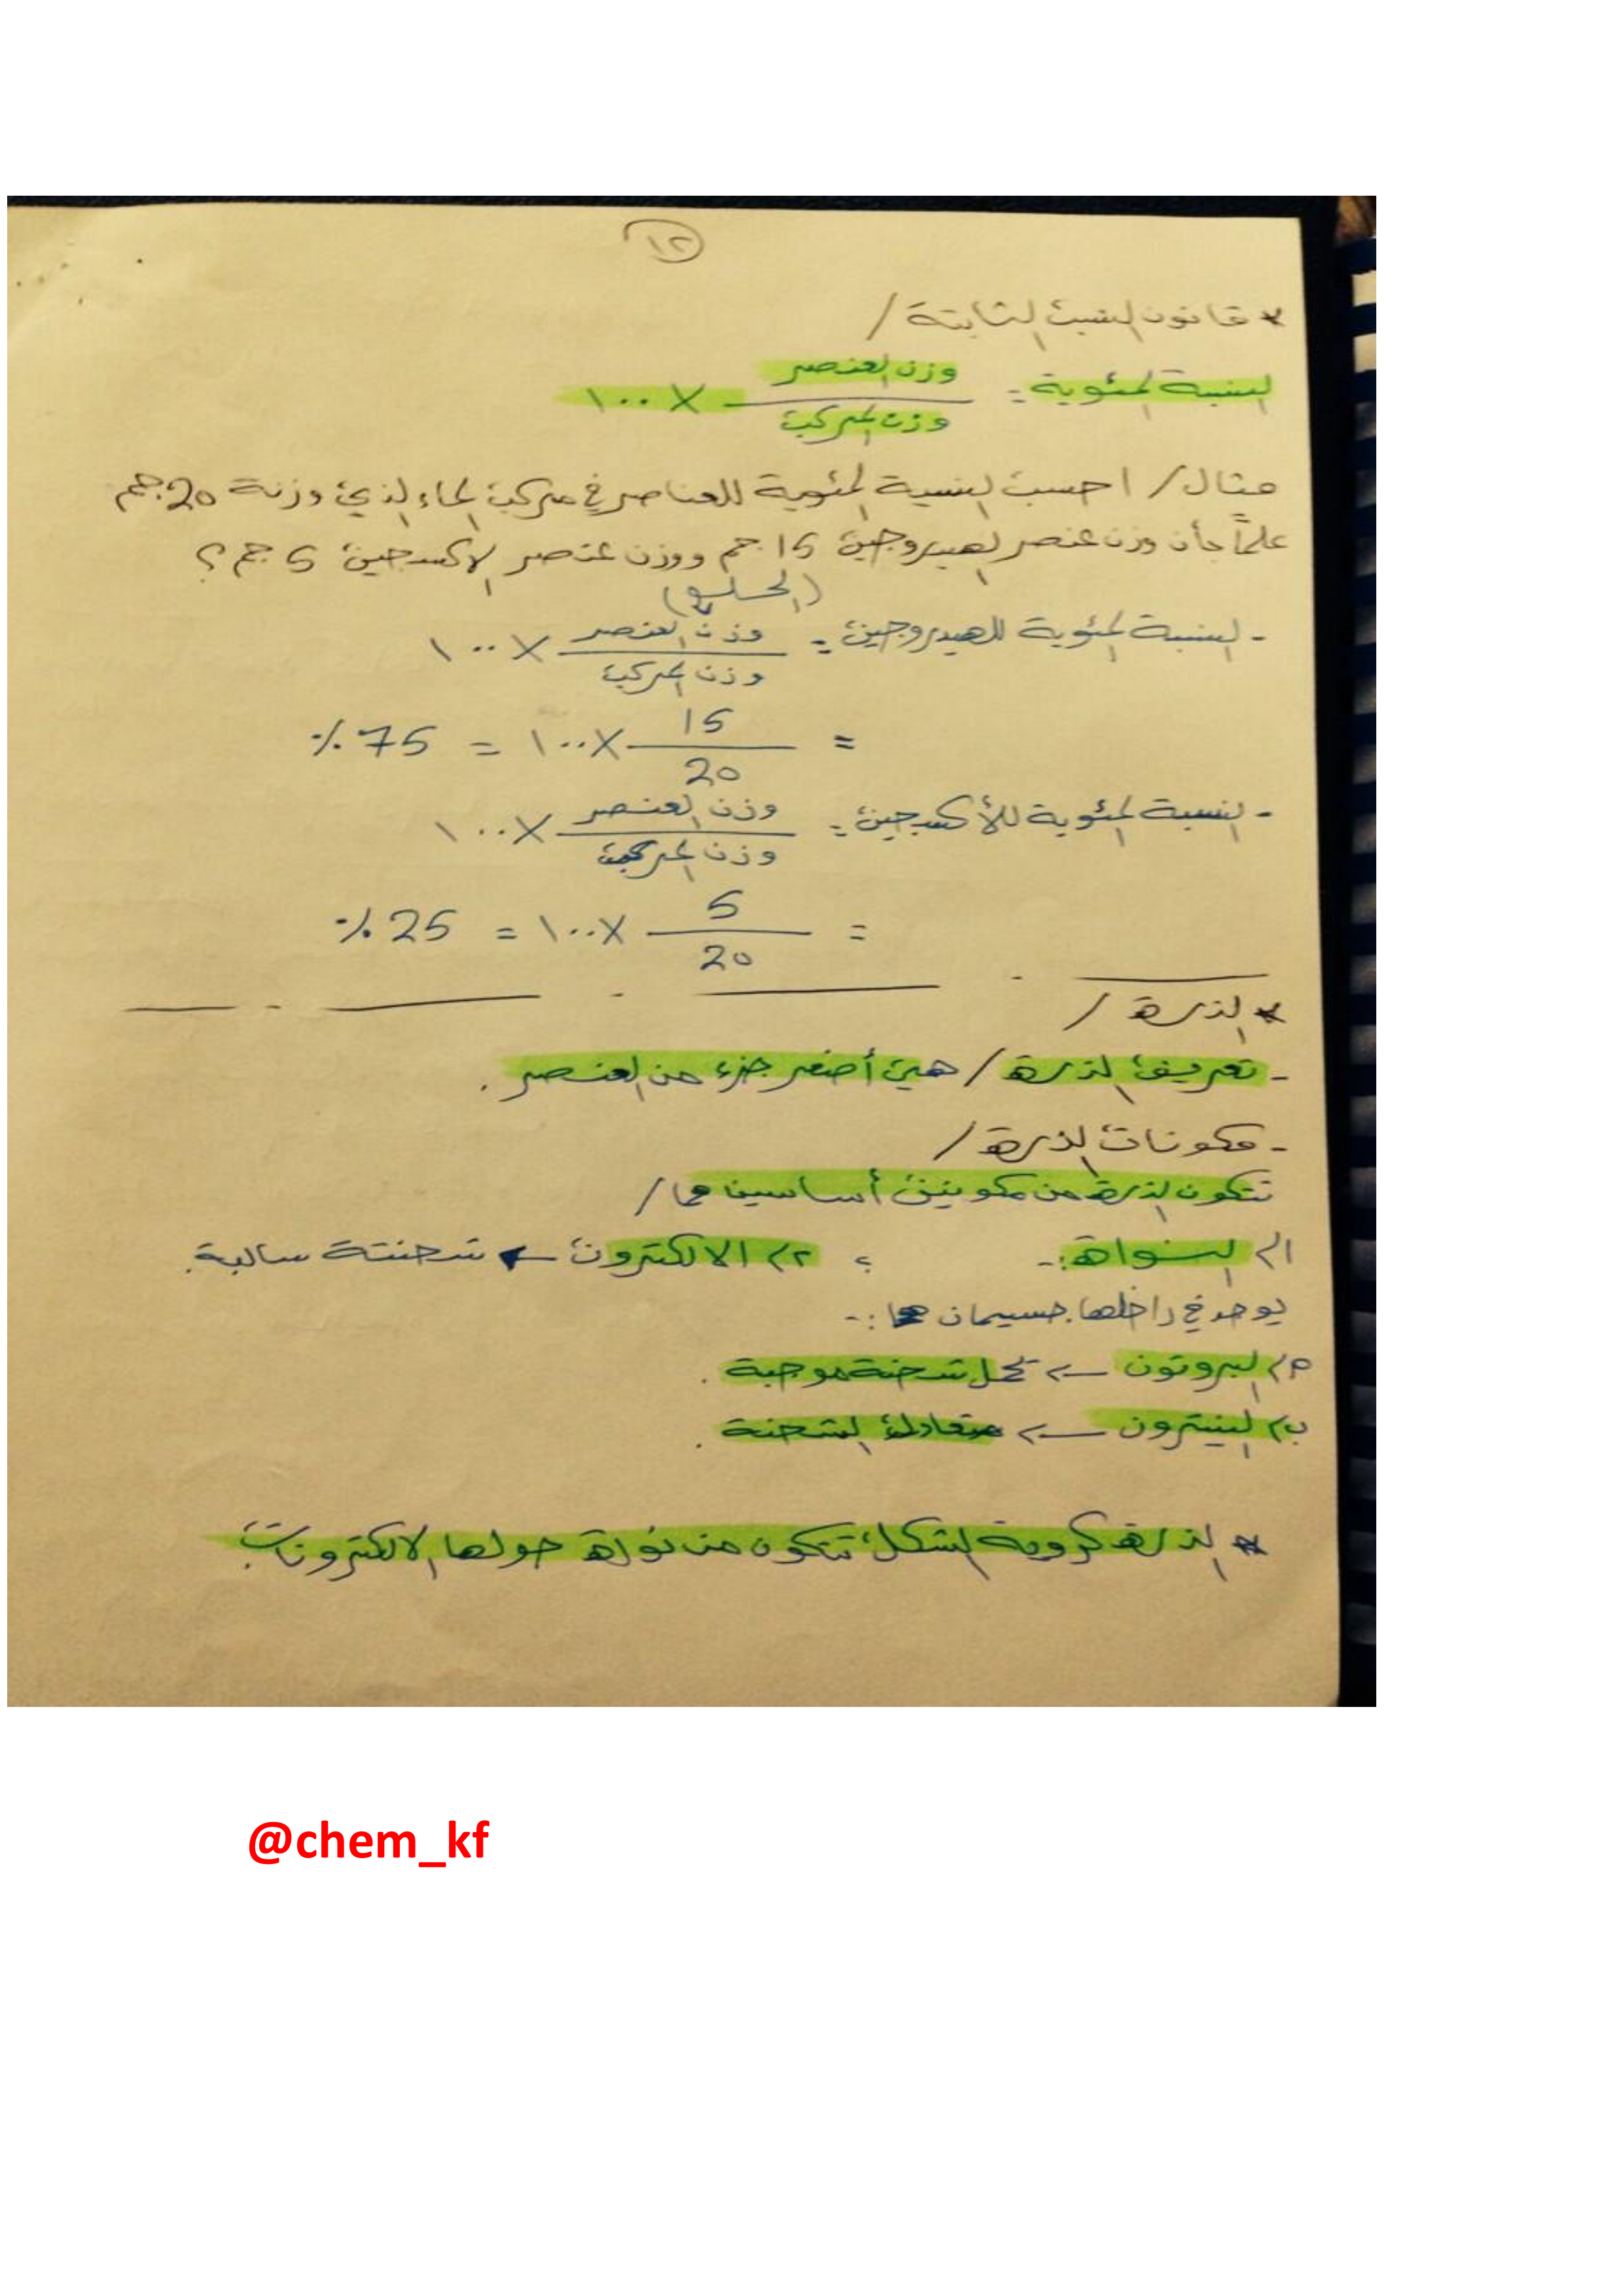 ١٢
* قانون النسب الثابتة /
النسبة المئوية = وزن العنصر / وزن المركب × ١٠٠
مثال / احسب النسبة المئوية للعناصر في مركب الماء الذي وزنة 20 جم
علماً بأن وزن عنصر الهيدروجين 15 جم ووزن عنصر الاكسجين 5 جم ؟
(الحل)
- النسبة المئوية للهيدروجين = وزن العنصر / وزن المركب × ١٠٠
= 15 / 20 × ١٠٠ = 75 %
- النسبة المئوية للأكسجين = وزن العنصر / وزن المركب × ١٠٠
= 5 / 20 × ١٠٠ = 25 %
* الذرة /
- تعريف الذرة / هي أصغر جزء من العنصر .
- مكونات الذرة /
تتكون الذرة من مكونين أساسين هما /
١) النواة :- ، ٢) الالكترون ← شحنتة سالبة .
يوجد في داخلها جسيمان هما :-
٢) البروتون ← تحمل شحنة موجبة .
ب) النيترون ← متعادل الشحنة .
* الذرة كروية الشكل تتكون من نواة حولها الالكترونات .
@chem_kf